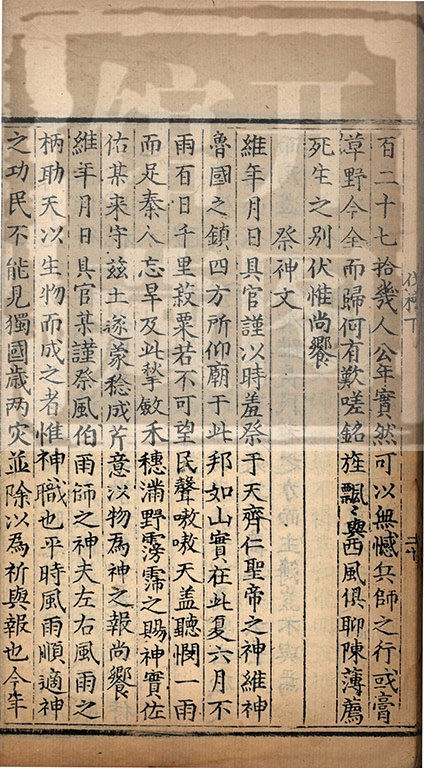 百二十七拾幾人公年實然可以無憾兵師之行或膏
草野今全而歸何有歎嗟銘旌飄飄與西風俱聊陳薄薦
死生之別伏惟尚饗
祭神文
維年月日具官謹以時羞祭于天齊仁聖帝之神維神
魯國之鎮四方所仰廟于此邦如山實在此夏六月不
雨百日千里菽粟若不可望民聲嗷嗷天蓋聽憫一雨
而足秦人忘旱及此斂禾穗滿野霶霈之賜神實佐
佑某来守兹土遂蒙稔成芹意以物為神之報尚饗
維年月日具官某謹祭風伯雨師之神夫左右風雨之
柄助天以生物而成之者惟神職也平時風雨順適神
之功民不能見獨國歲两灾並除以為祈與報也今年